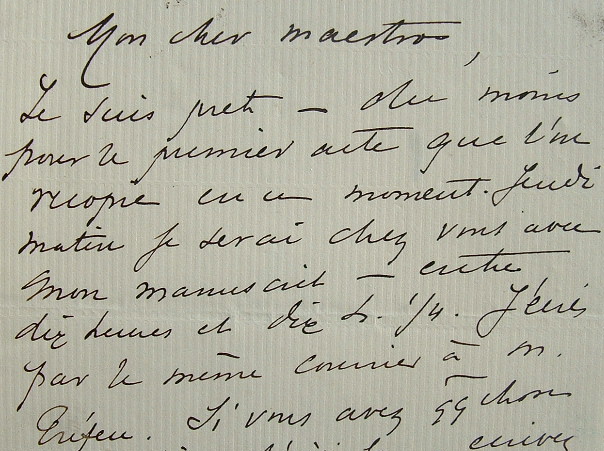 Mon cher maestro,
Je suis prêt — du moins
pour le premier acte que l'on
recopie en ce moment. Jeudi
matin je serai chez vous avec
mon manuscrit — entre
dix heures et dix h. 1/4. J'écris
par le même courrier à M.
Si vous avez qq chose